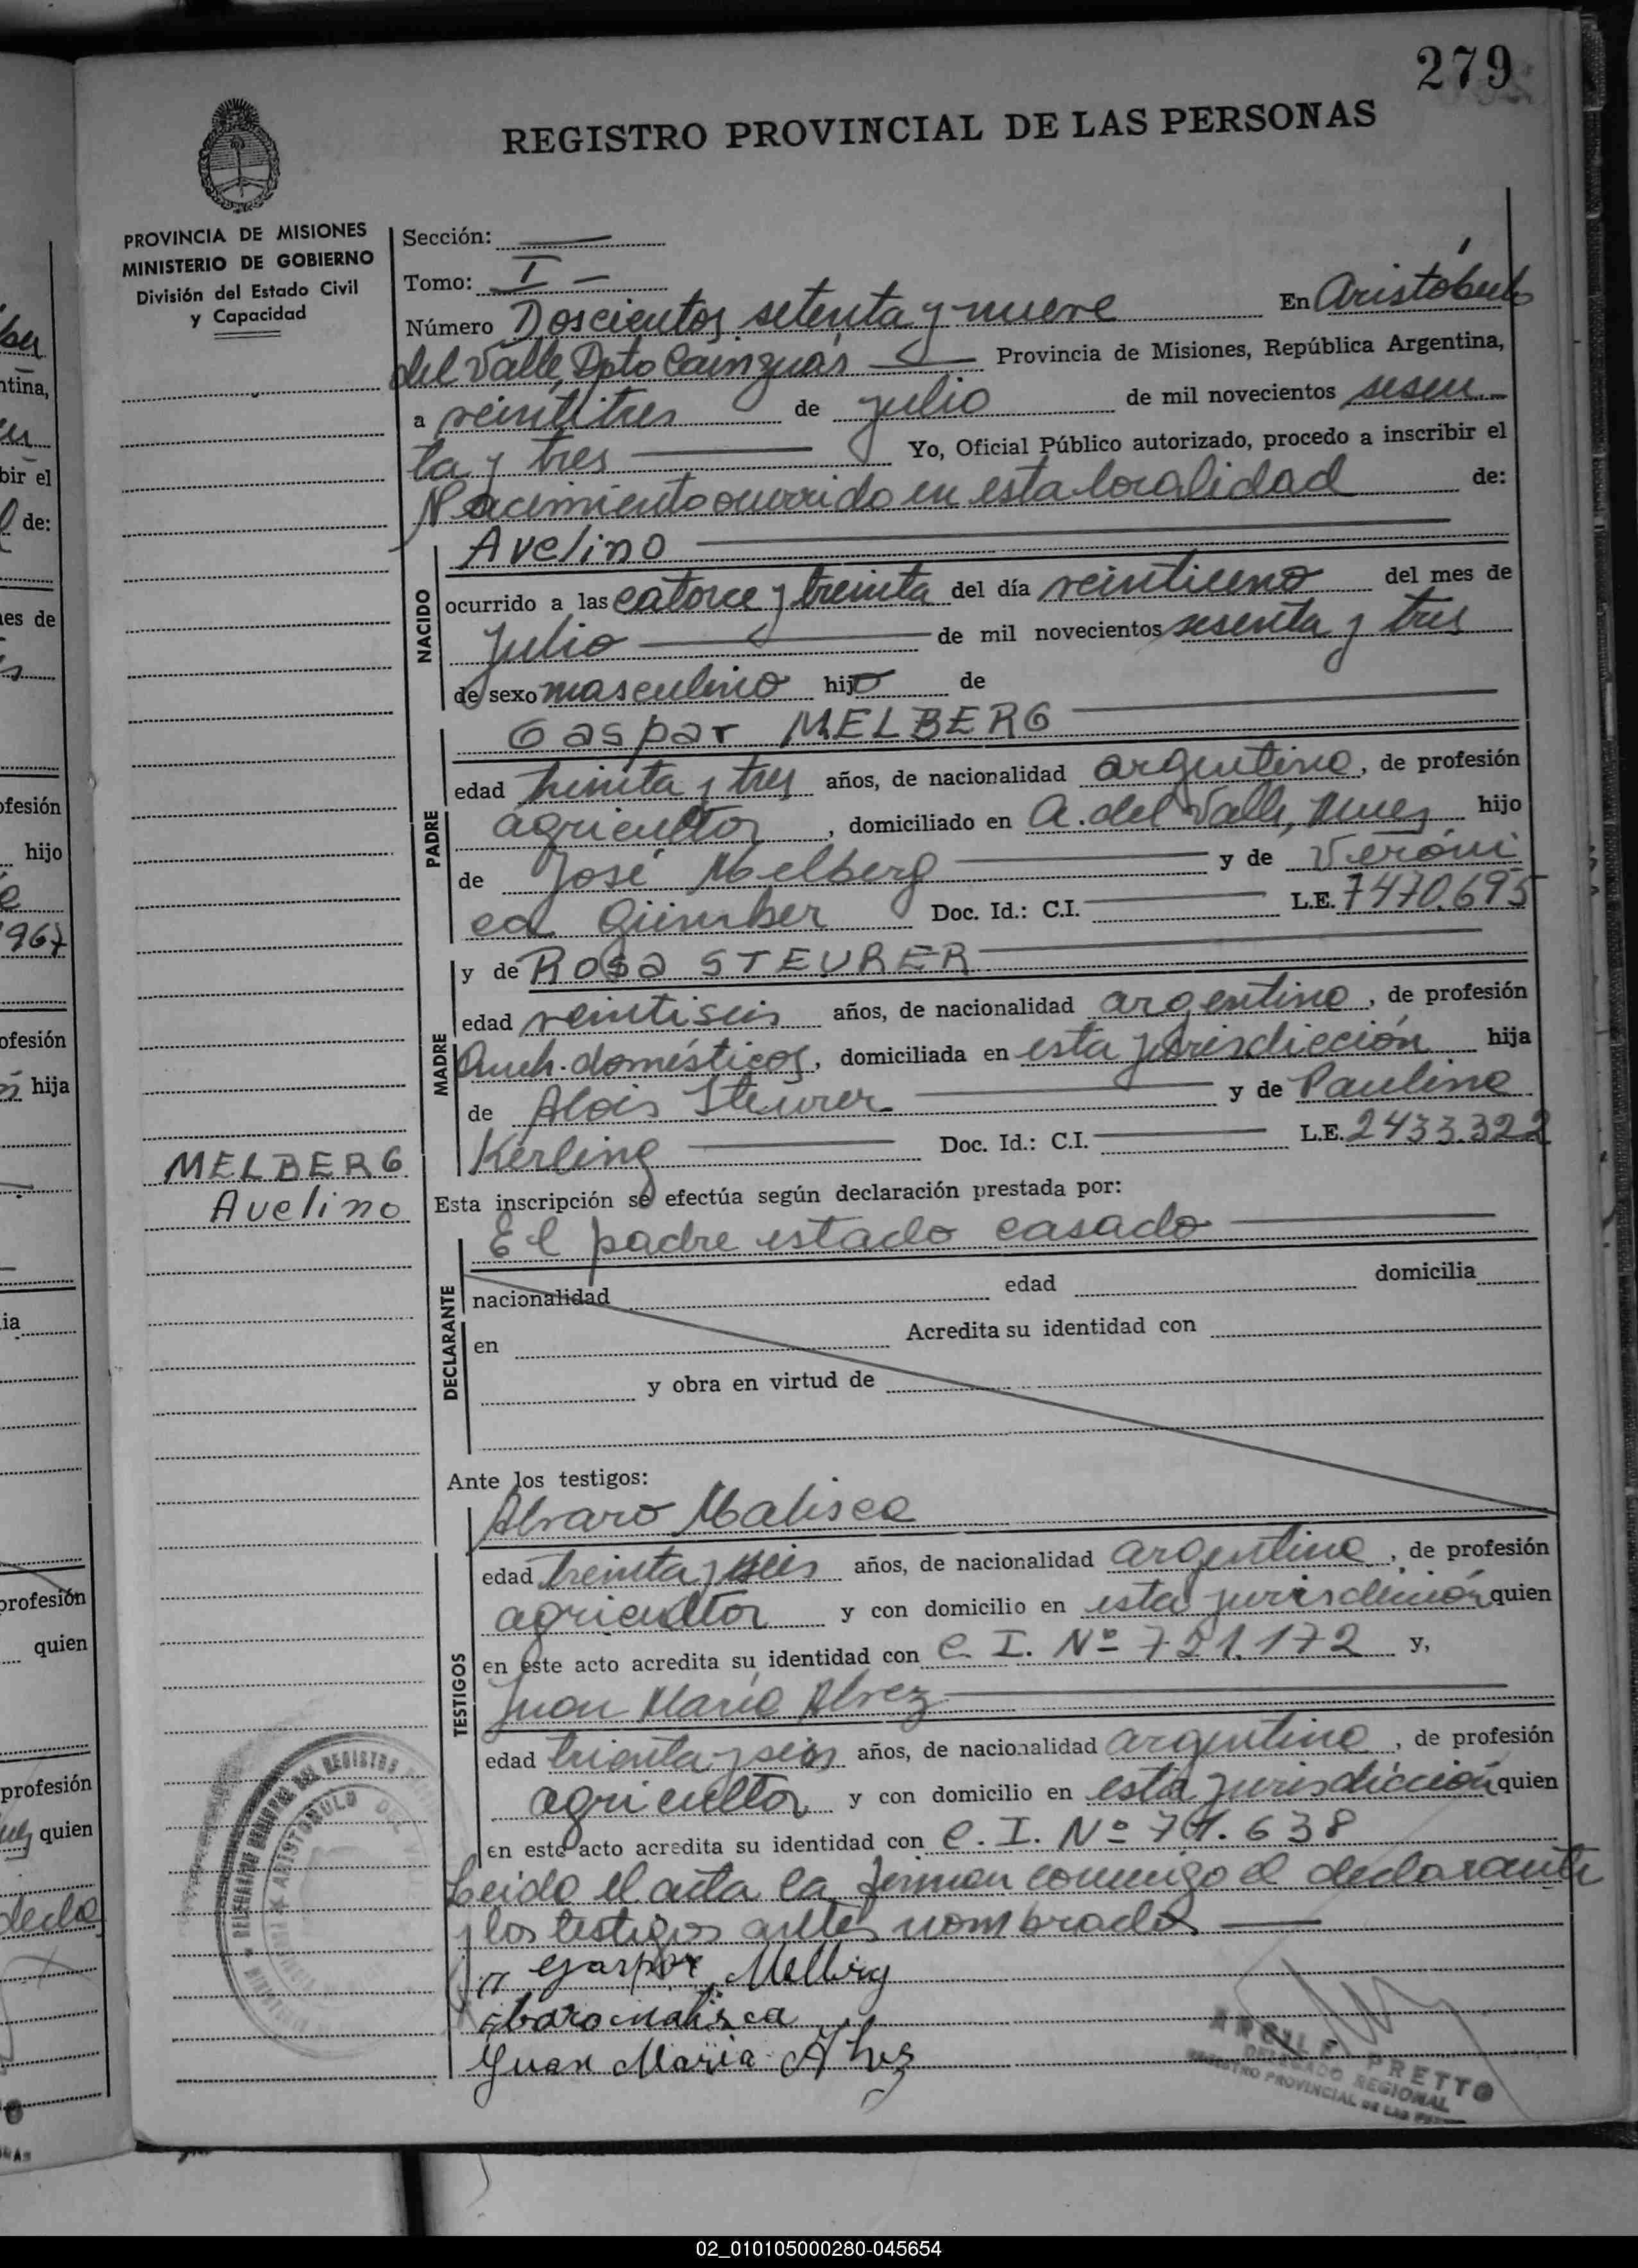 279
REGISTRO PROVINCIAL DE LAS PERSONAS
PROVINCIA DE MISIONES
MINISTERIO DE GOBIERNO
División del Estado Civil
y Capacidad
Sección:
Tomo: I
Número Doscientos setenta y nueve En Aristóbulo
del Valle, Dpto Cainguás Provincia de Misiones, República Argentina,
a veintitres de julio de mil novecientos sesen
ta y tres Yo, Oficial Público autorizado, procedo a inscribir el
Nacimiento ocurrido en esta localidad de:
Avelino
NACIDO
ocurrido a las catorce y treinta del día veintiuno del mes de
Julio de mil novecientos sesenta y tres
de sexo masculino hijo de
Gaspar MELBERG
PADRE
edad treinta y tres años, de nacionalidad argentino, de profesión
agricultor, domiciliado en A. del Valle, Mnes hijo
de José Melberg y de Veróni
ca Gümber Doc. Id.: C.I. L.E. 7470.695
y de Rosa STEURER
MADRE
edad veintiseis años, de nacionalidad argentina, de profesión
Queh. domésticos, domiciliada en esta jurisdicción hija
de Alois Steurer y de Paulina
Kerling Doc. Id.: C.I. L.E. 2433.322
MELBERG
Avelino
Esta inscripción se efectúa según declaración prestada por:
El padre estado casado
DECLARANTE
nacionalidad edad domicilia
en Acredita su identidad con
y obra en virtud de
Ante los testigos:
Alvaro Malisca
TESTIGOS
edad treinta y seis años, de nacionalidad argentino, de profesión
agricultor y con domicilio en esta jurisdicción quien
en este acto acredita su identidad con C. I. Nº 721.172 y,
Juan María Alvez
edad trienta y seis años, de nacionalidad argentino, de profesión
agricultor y con domicilio en esta jurisdicción quien
en este acto acredita su identidad con C. I. Nº 638
Leida el acta la firman conmigo el declarante
y los testigos antes nombrados
Garpar Melberg
malisca
Juan Maria Alves
PRETTO
DELEGADO REGIONAL
REGISTRO PROVINCIAL DE LAS
ARISTOBULO DEL
02_010105000280-045654